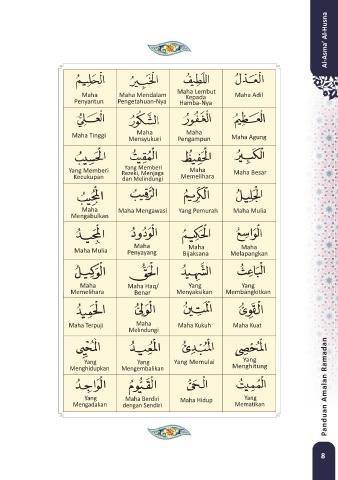 Al-Asma' Al-Husna
الْعَدْلُ اللَّطِيْفُ الْخَبِيْرُ الْحَلِيْمُ
Maha Penyantun
Maha Mendalam Pengetahuan-Nya
Maha Lembut Kepada Hamba-Nya
Maha Adil
الْعَظِيْمُ الْغَفُوْرُ الشَّكُوْرُ الْعَلِيُّ
Maha Tinggi
Maha Mensyukuri
Maha Pengampun
Maha Agung
الْكَبِيْرُ الْحَفِيْظُ الْمُقِيْتُ الْحَسِيْبُ
Yang Memberi Kecukupan
Yang Memberi Rezeki, Menjaga dan Melindungi
Maha Memelihara
Maha Besar
الْجَلِيْلُ الْكَرِيْمُ الرَّقِيْبُ الْمُجِيْبُ
Maha Mengabulkan
Maha Mengawasi
Yang Pemurah
Maha Mulia
الْوَاسِعُ الْحَكِيْمُ الْوَدُوْدُ الْمَجِيْدُ
Maha Mulia
Maha Penyayang
Maha Bijaksana
Maha Melapangkan
الْبَاعِثُ الشَّهِيْدُ الْحَقُّ الْوَكِيْلُ
Maha Memelihara
Maha Haq/ Benar
Yang Menyaksikan
Yang Membangkitkan
الْقَوِيُّ الْمَتِيْنُ الْوَلِيُّ الْحَمِيْدُ
Maha Terpuji
Maha Melindungi
Maha Kukuh
Maha Kuat
الْمُحْصِيُ الْمُبْدِئُ الْمُعِيْدُ الْمُحْيِيْ
Yang Menghidupkan
Yang Mengembalikan
Yang Memulai
Yang Menghitung
الْمُمِيْتُ الْحَيُّ الْقَيُّوْمُ الْوَاجِدُ
Yang Mengadakan
Maha Berdiri dengan Sendiri
Maha Hidup
Yang Mematikan
Panduan Amalan Ramadan
8